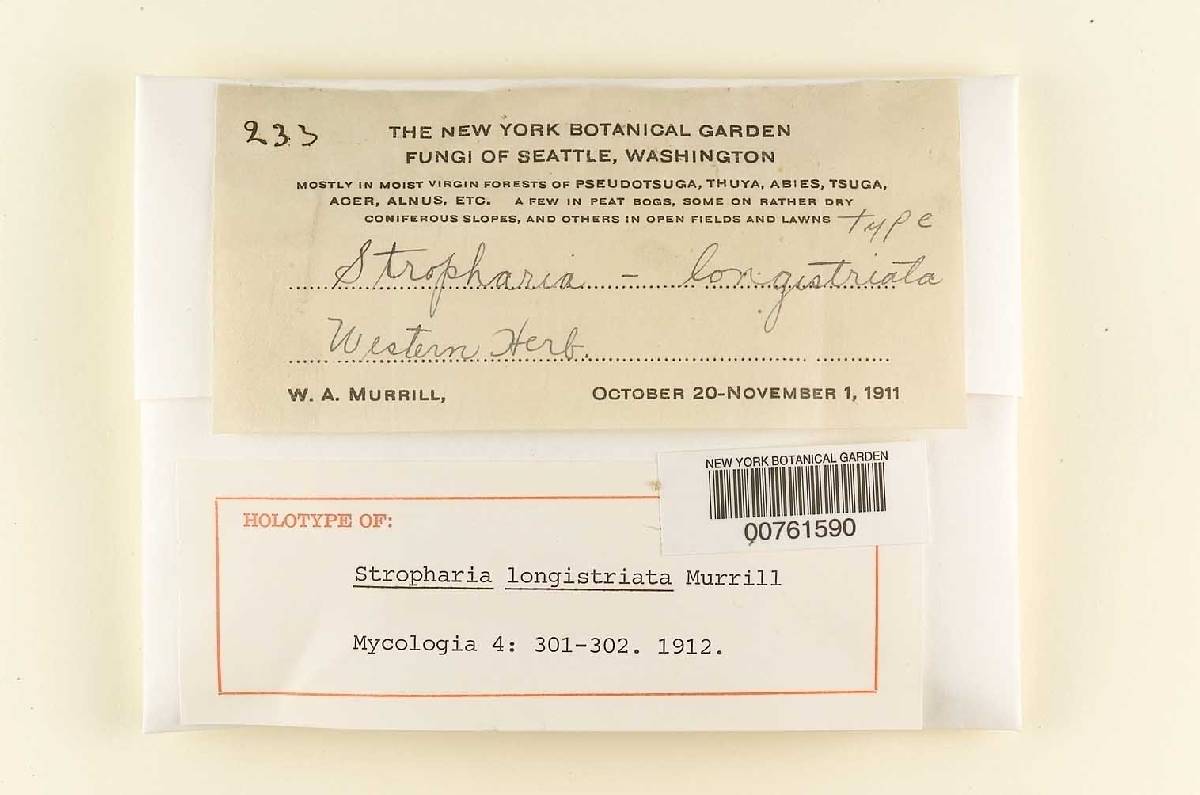 233
THE NEW YORK BOTANICAL GARDEN
FUNGI OF SEATTLE, WASHINGTON
MOSTLY IN MOIST VIRGIN FORESTS OF PSEUDOTSUGA, THUYA, ABIES, TSUGA,
ACER, ALNUS, ETC. A FEW IN PEAT BOGS, SOME ON RATHER DRY
CONIFEROUS SLOPES, AND OTHERS IN OPEN FIELDS AND LAWNS
Type
Stropharia – longistriata
Western Herb.
W. A. MURRILL, OCTOBER 20-NOVEMBER 1, 1911
NEW YORK BOTANICAL GARDEN
00761590
HOLOTYPE OF:
Stropharia longistriata Murrill
Mycologia 4: 301-302. 1912.